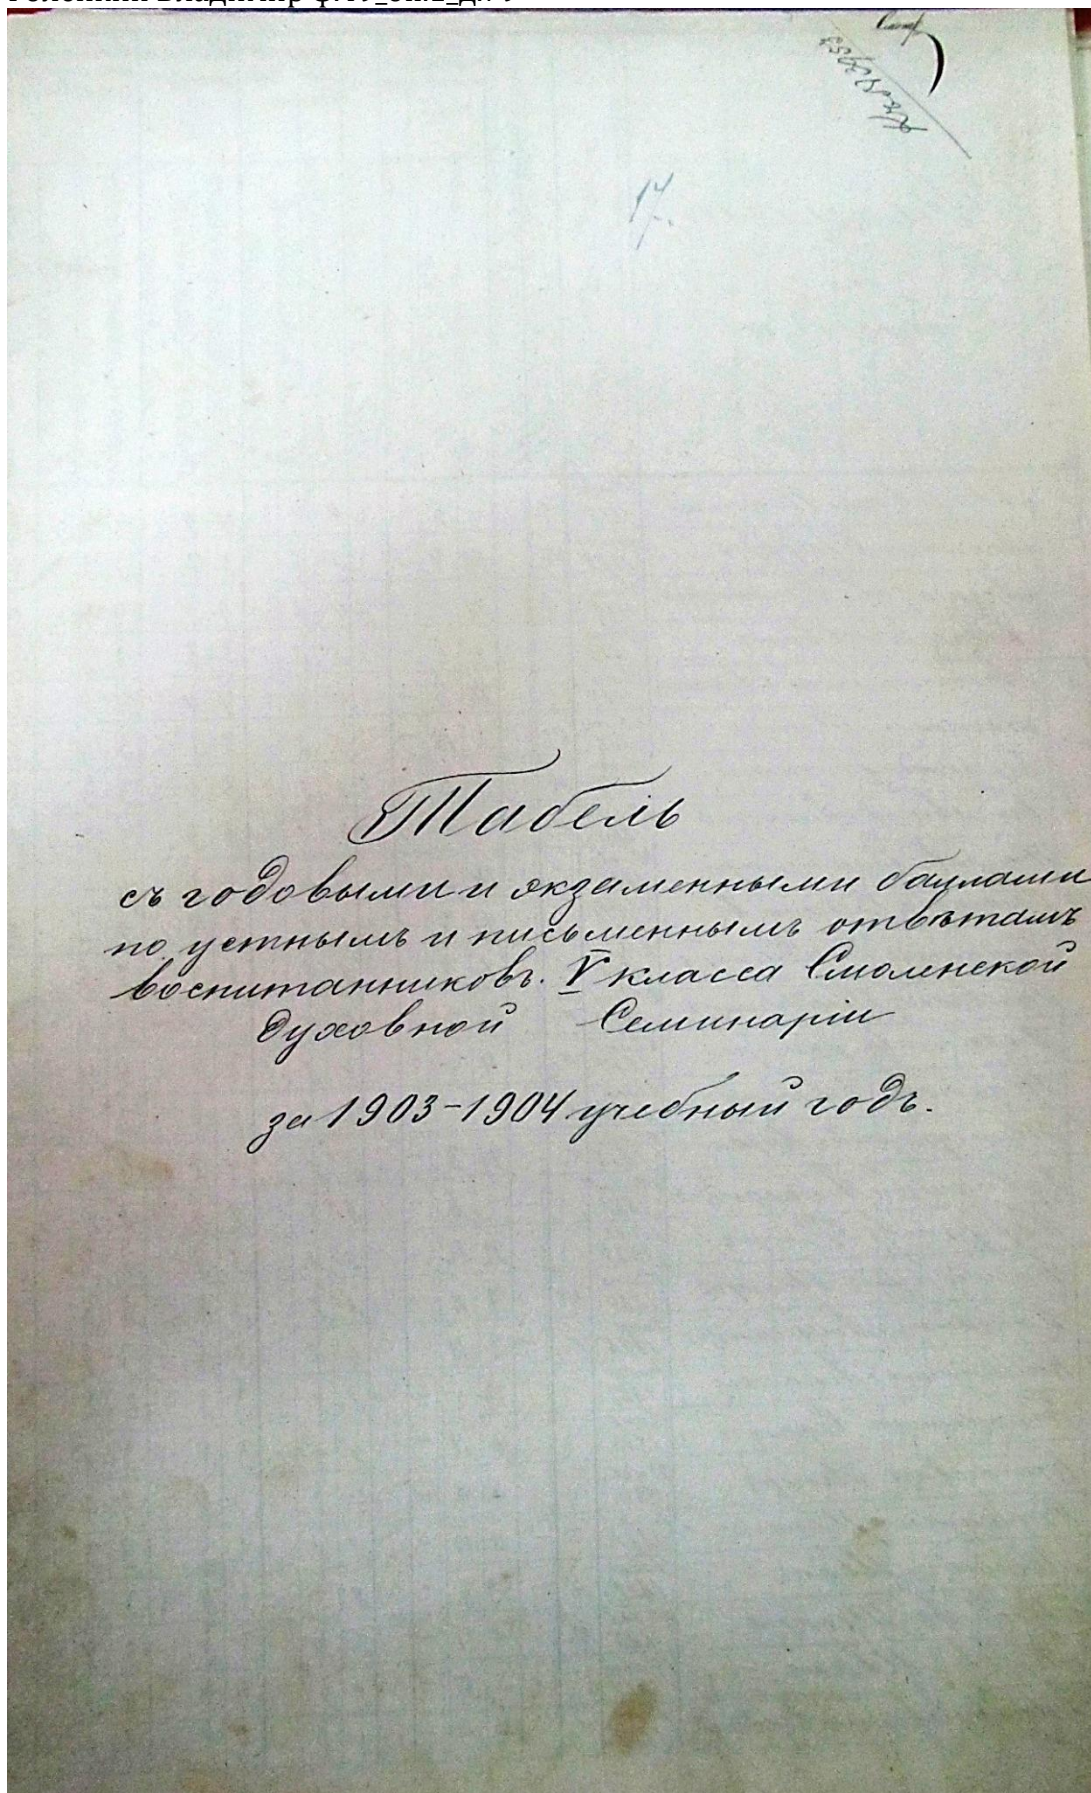 17.
Табель
съ годовыми и экзаменными баллами
по устнымъ и письменнымъ отвѣтамъ
воспитанниковъ. V класса Смоленской
Духовной Семинаріи
за 1903-1904 учебный годъ.